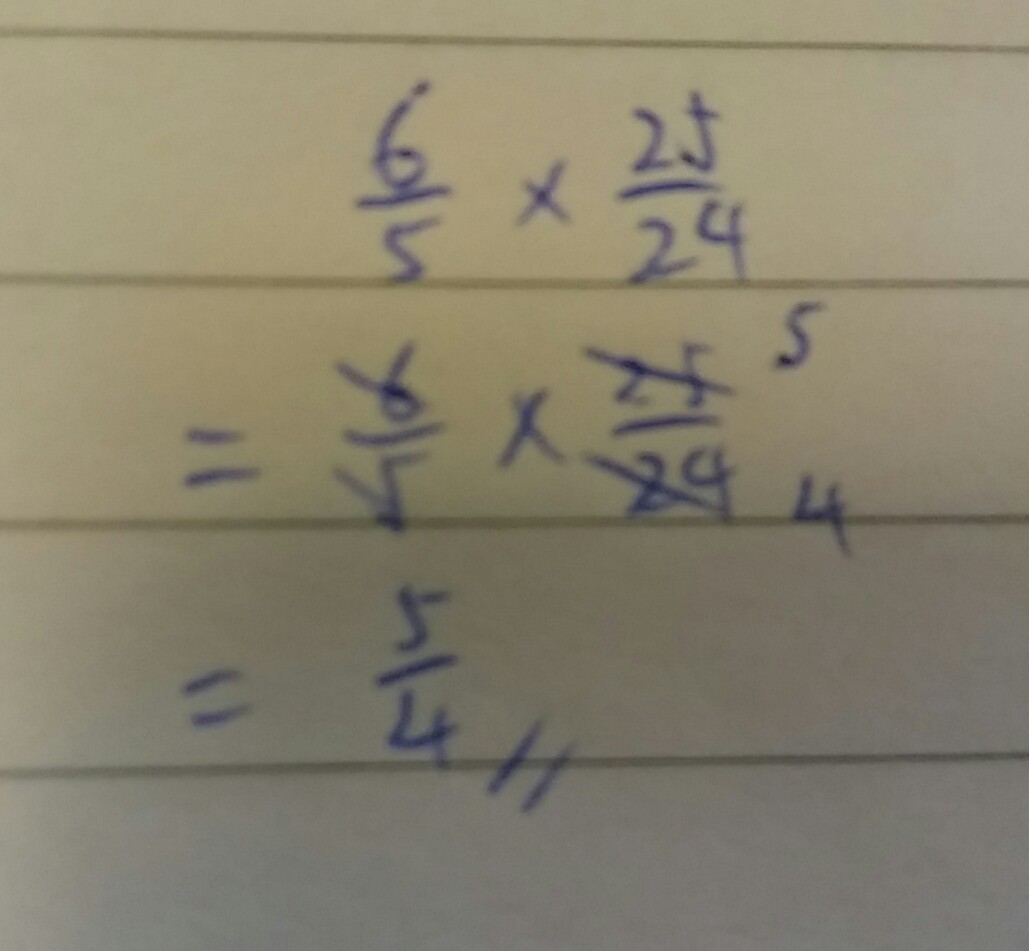 6/5 × 25/24
= 6/5 × 25/24 5 4
= 5/4 //